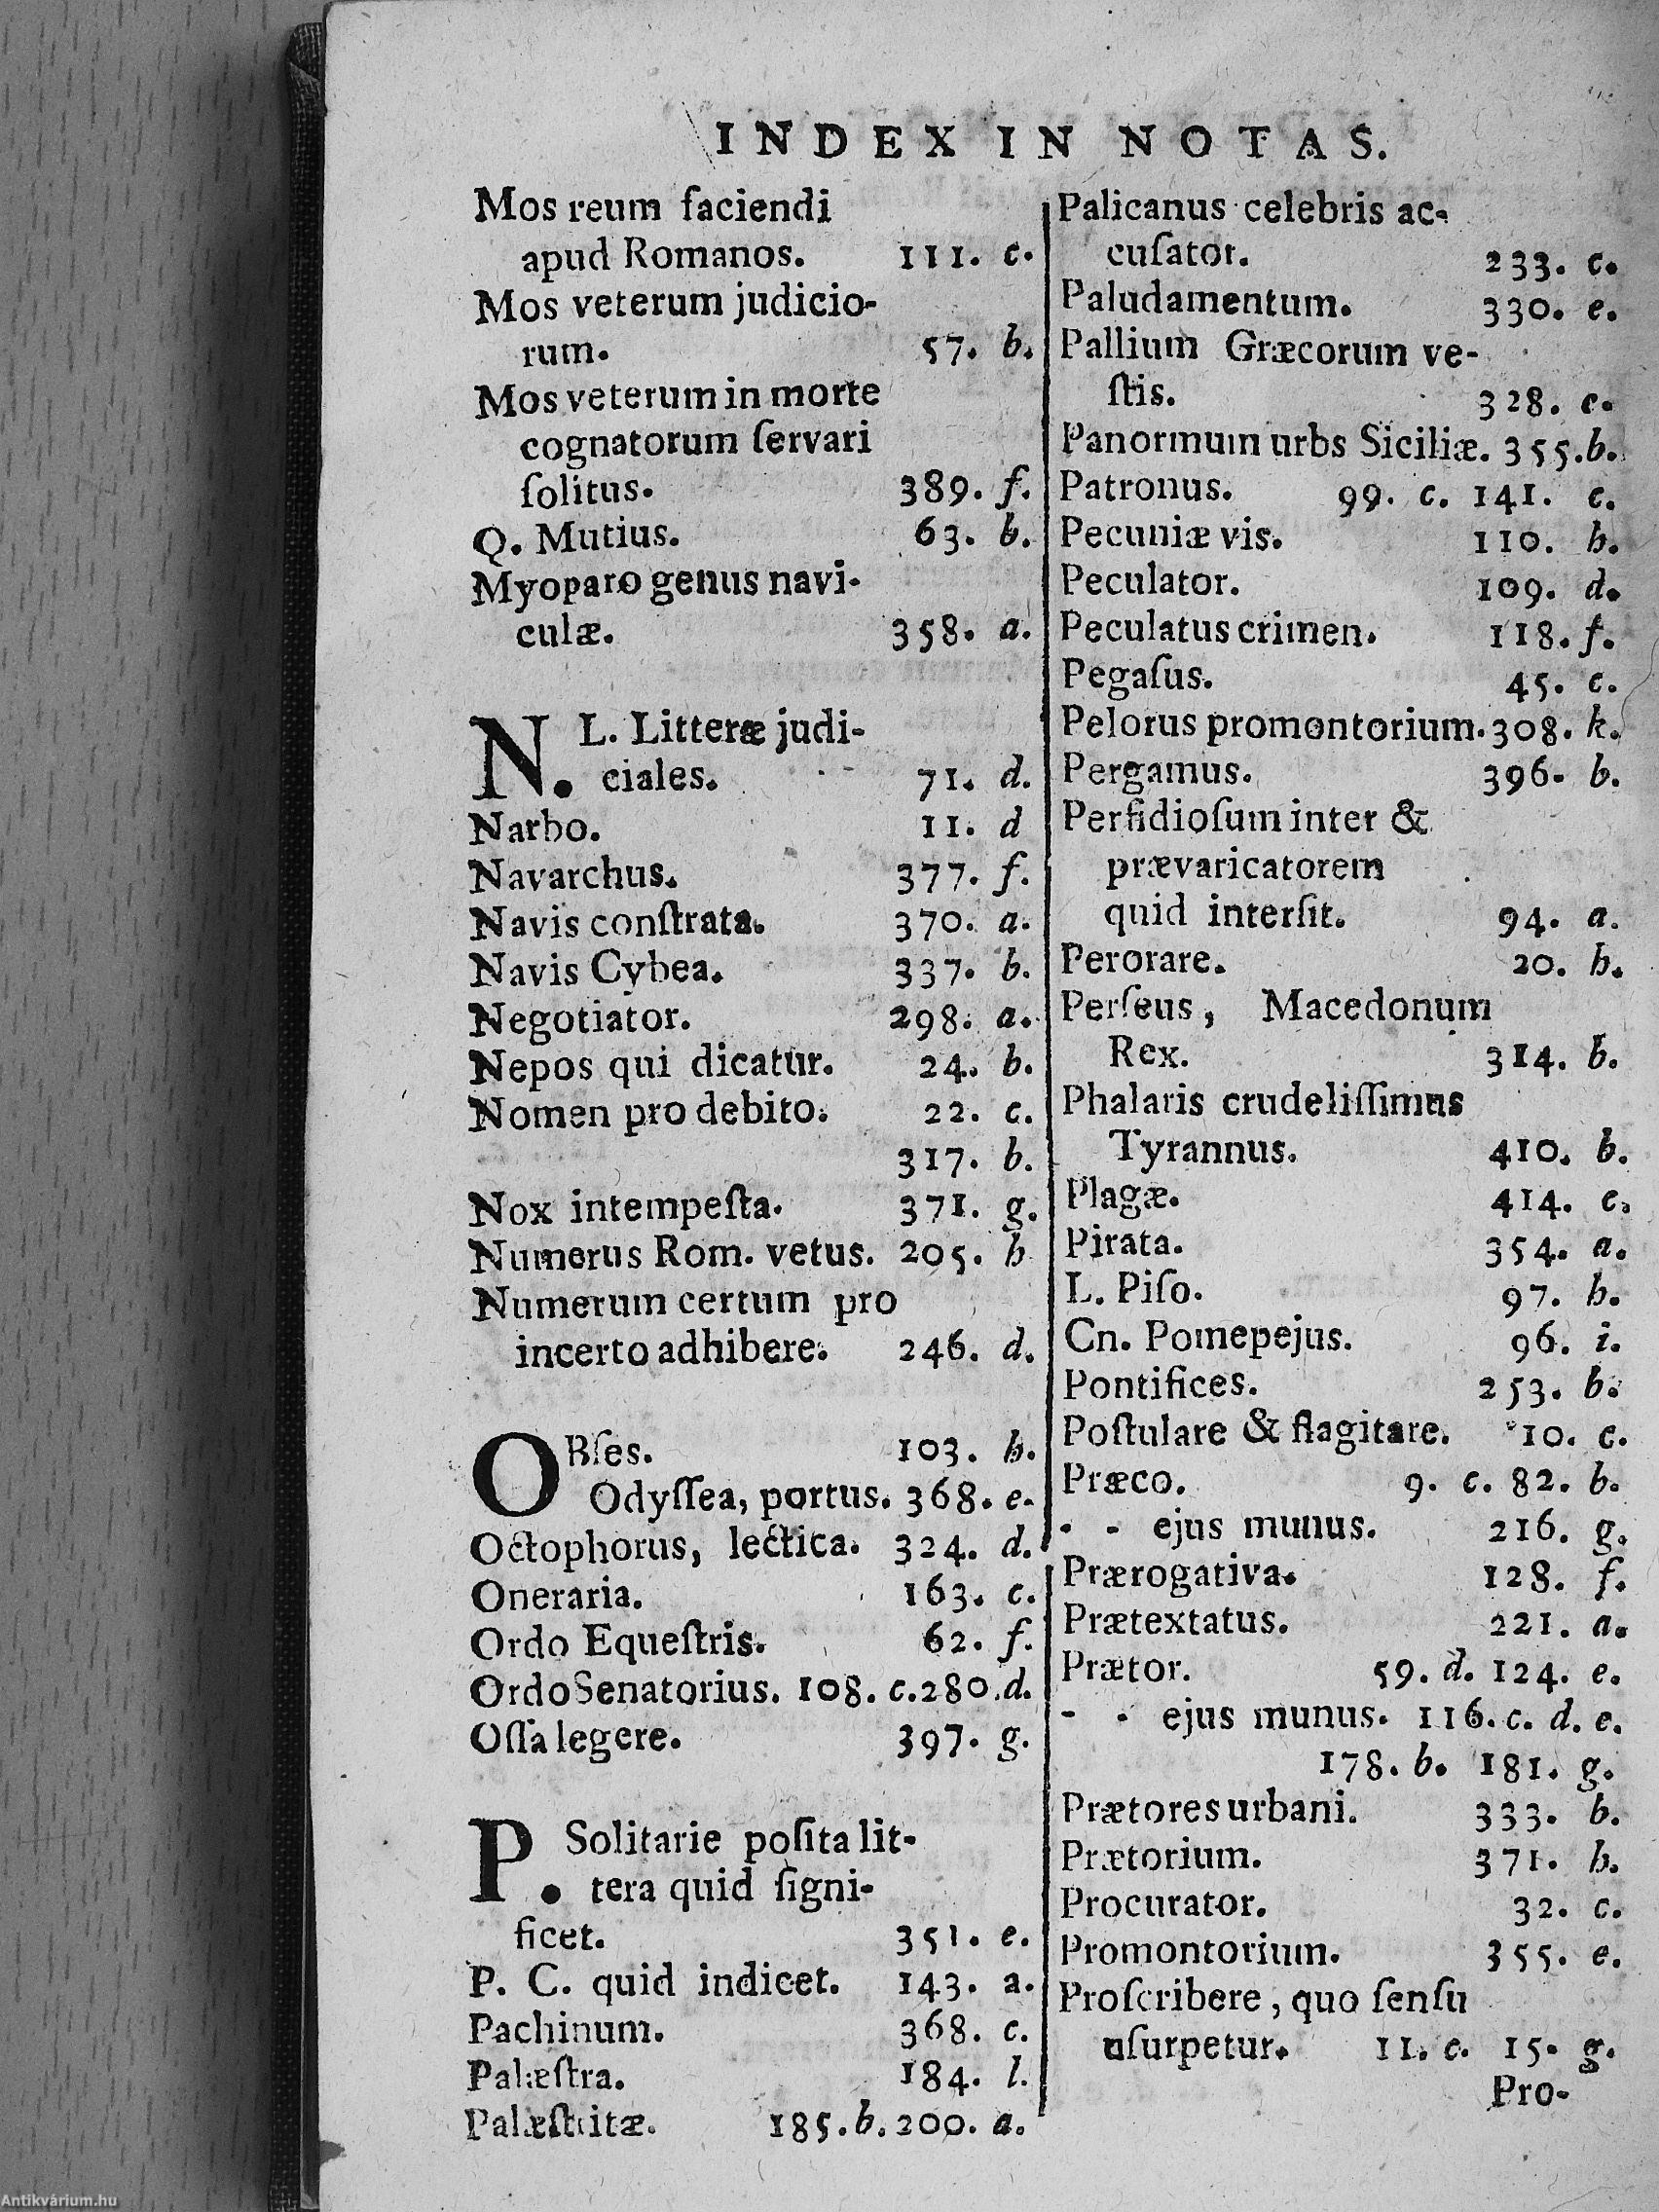 INDEX IN NOTAS.
Mos reum faciendi
apud Romanos. 111. c.
Mos veterum judicio-
rum. 57. b.
Mos veterum in morte
cognatorum ſervari
ſolitus. 389. f.
Q. Mutius. 63. b.
Myoparo genus navi-
culæ. 358. a.
N. L. Litteræ judi-
ciales. 71. d.
Narbo. 11. d
Navarchus. 377. f.
Navis conſtrata. 370. a.
Navis Cybea. 337. b.
Negotiator. 298. a.
Nepos qui dicatur. 24. b.
Nomen pro debito. 22. c.
317. b.
Nox intempeſta. 371. g.
Numerus Rom. vetus. 205. h
Numerum certum pro
incerto adhibere. 246. d.
OBſes. 103. h.
Odyſſea, portus. 368. e.
Octophorus, lectica. 324. d.
Oneraria. 163. c.
Ordo Equeſtris. 62. f.
Ordo Senatorius. 108. c. 280. d.
Oſſa legere. 397. g.
P. Solitarie poſita lit-
tera quid ſigni-
ficet. 351. e.
P. C. quid indicet. 143. a.
Pachinum. 368. c.
Palæſtra. 184. l.
Palæſtritæ. 185. b. 200. a.
Palicanus celebris ac-
cuſator. 233. c.
Paludamentum. 330. e.
Pallium Græcorum ve-
ſtis. 328. c.
Panormum urbs Siciliæ. 355. b.
Patronus. 99. c. 141. c.
Pecuniæ vis. 110. h.
Peculator. 109. d.
Peculatus crimen. 118. f.
Pegaſus. 45. c.
Pelorus promontorium. 308. k.
Pergamus. 396. b.
Perfidioſum inter &
prævaricatorem
quid interſit. 94. a.
Perorare. 20. h.
Perſeus, Macedonum
Rex. 314. b.
Phalaris crudeliſſimus
Tyrannus. 410. b.
Plagæ. 414. c.
Pirata. 354. a.
L. Piſo. 97. h.
Cn. Pomepejus. 96. i.
Pontifices. 253. b.
Poſtulare & flagitare. 10. c.
Præco. 9. c. 82. b.
- - ejus munus. 216. g.
Prærogativa. 128. f.
Prætextatus. 221. a.
Prætor. 59. d. 124. e.
- - ejus munus. 116. c. d. e.
178. b. 181. g.
Prætores urbani. 333. b.
Prætorium. 371. h.
Procurator. 32. c.
Promontorium. 355. e.
Proſcribere, quo ſenſu
uſurpetur. 11. c. 15. g.
Pro-
Antikvárium.hu